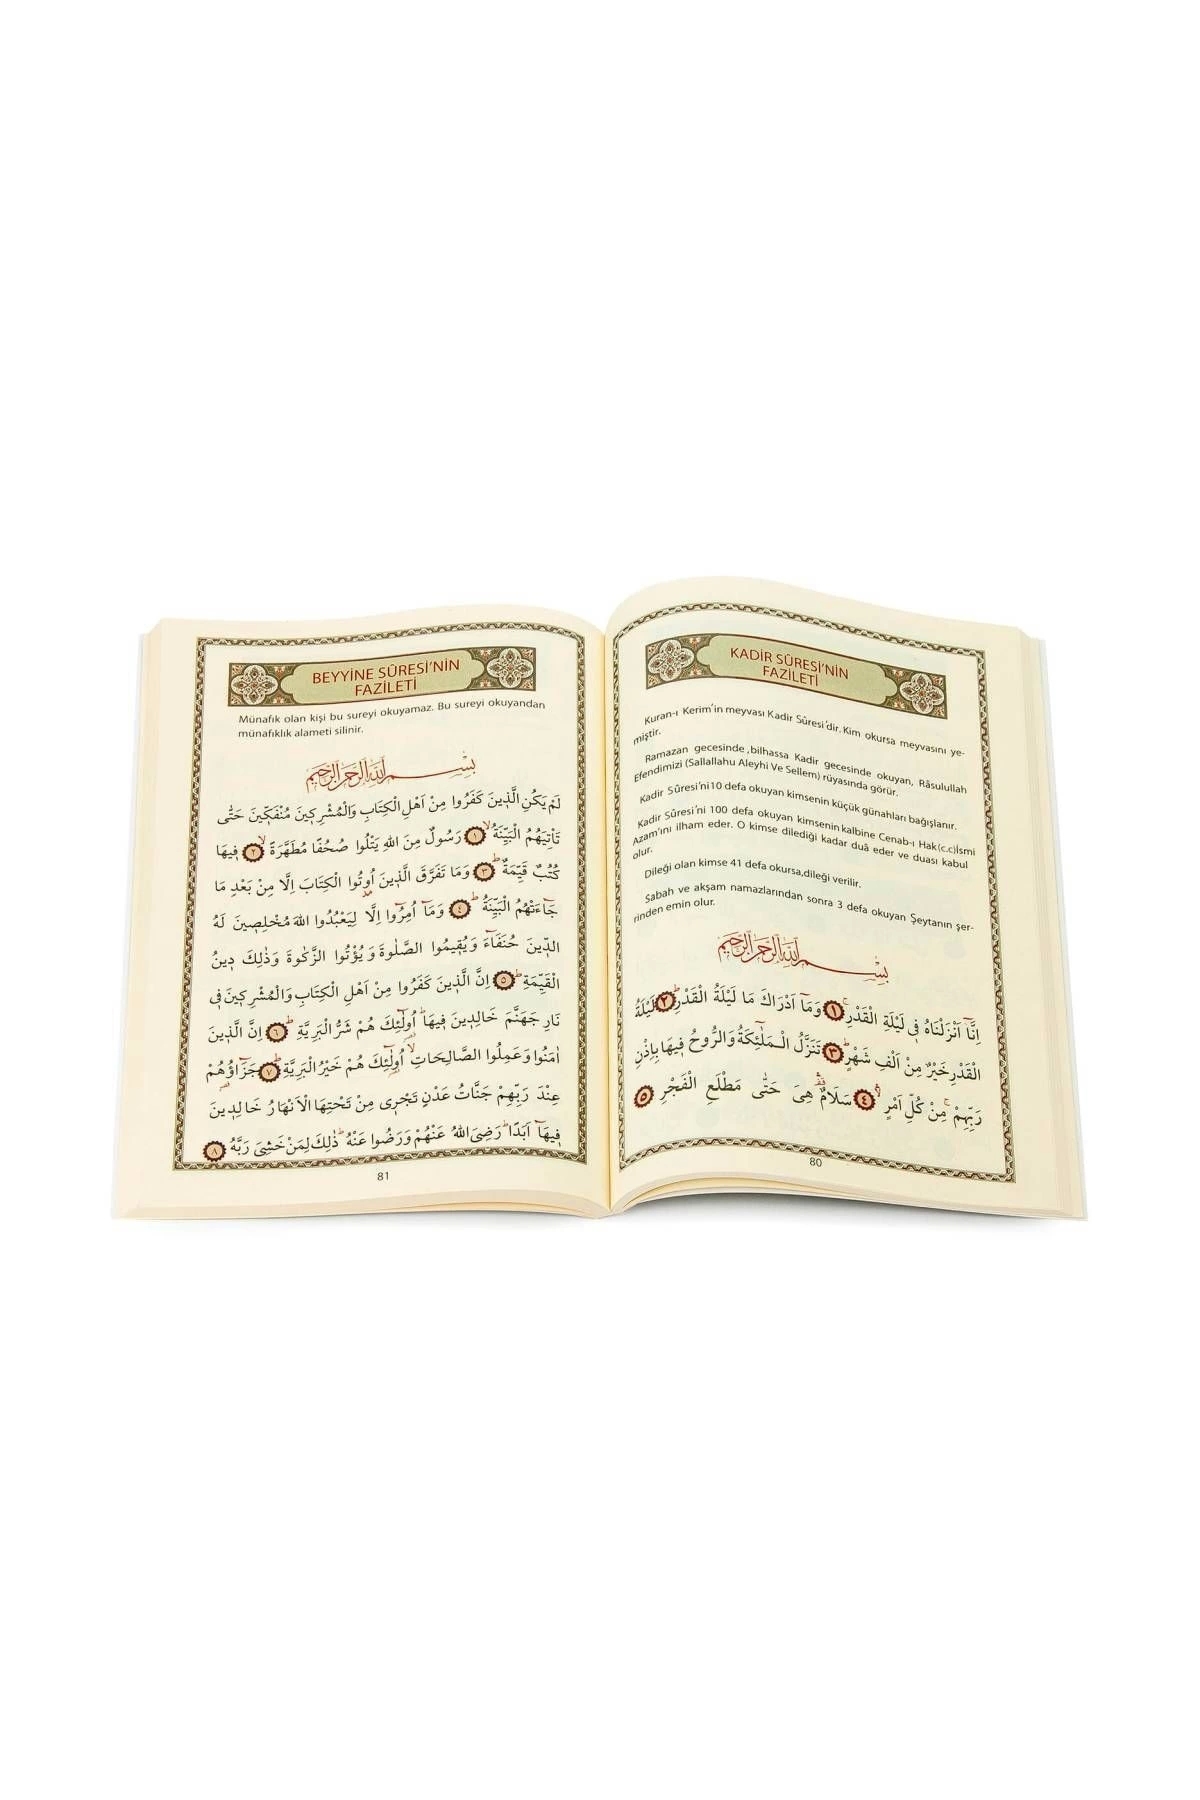 KADİR SÛRESİ'NİN
FAZİLETİ
Kuran-ı Kerim'in meyvası Kadir Sûresi'dir. Kim okursa meyvasını ye-
miştir.
Ramazan gecesinde ,bilhassa Kadir gecesinde okuyan, Râsulullah
Efendimizi (Sallallahu Aleyhi Ve Sellem) rüyasında görür.
Kadir Sûresi'ni10 defa okuyan kimsenin küçük günahları bağışlanır.
Kadir Sûresi'ni 100 defa okuyan kimsenin kalbine Cenab-ı Hak(c.c)İsmi
Azam'ını ilham eder. O kimse dilediği kadar duâ eder ve duası kabul
olur.
Dileği olan kimse 41 defa okursa,dileği verilir.
Sabah ve akşam namazlarından sonra 3 defa okuyan Şeytanın şer-
rinden emin olur.
بِسْمِ اللّٰهِ الرَّحْمٰنِ الرَّحِيمِ
اِنَّٓا اَنْزَلْنَاهُ فٖى لَيْلَةِ الْقَدْرِۚ ١ وَمَٓا اَدْرَاكَ مَا لَيْلَةُ الْقَدْرِؕ ٢ لَيْلَةُ
الْقَدْرِ خَيْرٌ مِنْ اَلْفِ شَهْرٍؕ ٣ تَنَزَّلُ الْمَلٰٓئِكَةُ وَالرُّوحُ فٖيهَا بِاِذْنِ
رَبِّهِمْۚ مِنْ كُلِّ اَمْرٍۙ ٤ سَلَامٌ هِىَ حَتّٰى مَطْلَعِ الْفَجْرِ ٥
80
BEYYİNE SÛRESİ'NİN
FAZİLETİ
Münafık olan kişi bu sureyi okuyamaz. Bu sureyi okuyandan
münafıklık alameti silinir.
بِسْمِ اللّٰهِ الرَّحْمٰنِ الرَّحِيمِ
لَمْ يَكُنِ الَّذٖينَ كَفَرُوا مِنْ اَهْلِ الْكِتَابِ وَالْمُشْرِكٖينَ مُنْفَكّٖينَ حَتّٰى
تَأْتِيَهُمُ الْبَيِّنَةُۙ ١ رَسُولٌ مِنَ اللّٰهِ يَتْلُوا صُحُفًا مُطَهَّرَةًۙ ٢ فٖيهَا
كُتُبٌ قَيِّمَةٌؕ ٣ وَمَا تَفَرَّقَ الَّذٖينَ اُوتُوا الْكِتَابَ اِلَّا مِنْ بَعْدِ مَا
جَٓاءَتْهُمُ الْبَيِّنَةُؕ ٤ وَمَٓا اُمِرُٓوا اِلَّا لِيَعْبُدُوا اللّٰهَ مُخْلِصٖينَ لَهُ
الدّٖينَ حُنَفَٓاءَ وَيُقٖيمُوا الصَّلٰوةَ وَيُؤْتُوا الزَّكٰوةَ وَذٰلِكَ دٖينُ
الْقَيِّمَةِؕ ٥ اِنَّ الَّذٖينَ كَفَرُوا مِنْ اَهْلِ الْكِتَابِ وَالْمُشْرِكٖينَ فٖى
نَارِ جَهَنَّمَ خَالِدٖينَ فٖيهَاؕ اُولٰٓئِكَ هُمْ شَرُّ الْبَرِيَّةِؕ ٦ اِنَّ الَّذٖينَ
اٰمَنُوا وَعَمِلُوا الصَّالِحَاتِۙ اُولٰٓئِكَ هُمْ خَيْرُ الْبَرِيَّةِؕ ٧ جَزَٓاؤُهُمْ
عِنْدَ رَبِّهِمْ جَنَّاتُ عَدْنٍ تَجْرٖى مِنْ تَحْتِهَا الْاَنْهَارُ خَالِدٖينَ
فٖيهَٓا اَبَدًاؕ رَضِىَ اللّٰهُ عَنْهُمْ وَرَضُوا عَنْهُؕ ذٰلِكَ لِمَنْ خَشِىَ رَبَّهُ ٨
81